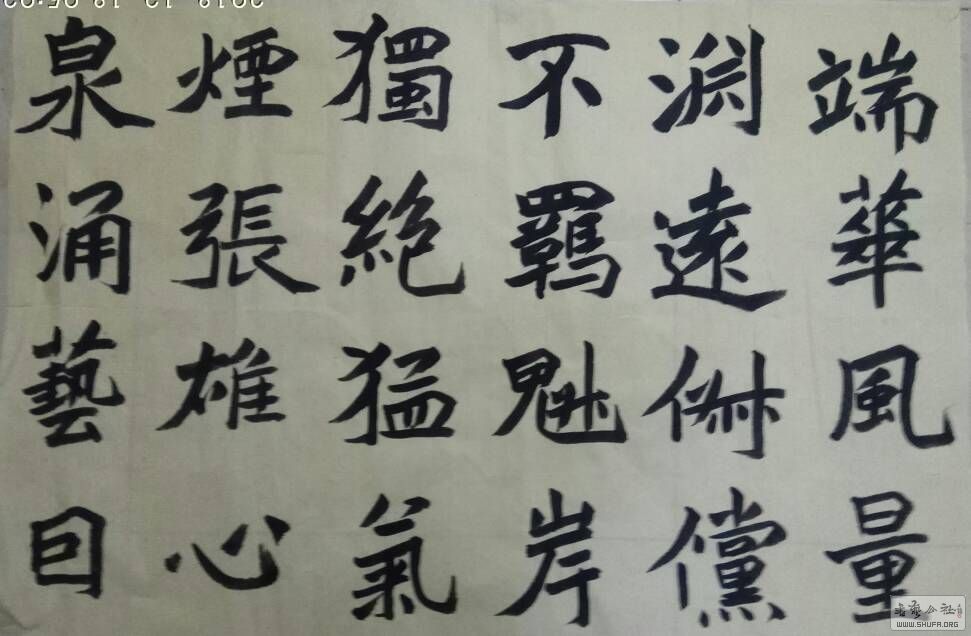 端華風量
淵遠俶儻
不羈魁岸
獨絕猛氣
煙張雄心
泉涌藝囙
书艺公社
WWW.SHUFA.ORG